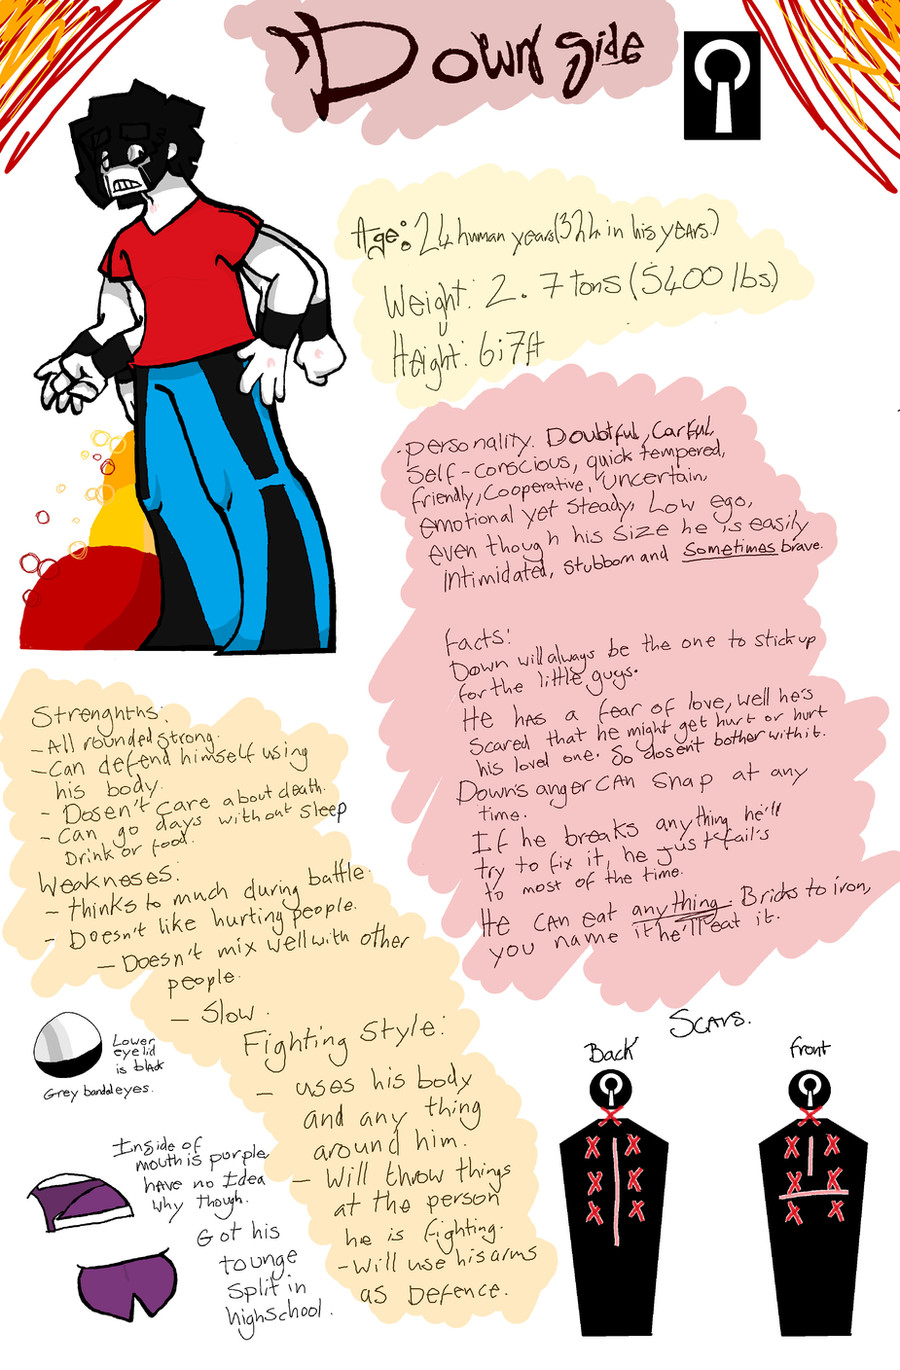 Down Side
Age: 24 human years (324 in his years.)
Weight: 2.7 tons (5400 lbs)
Height: 6;7ft
·Personality. Doubtful, Careful,
Self-conscious, quick tempered,
friendly, Cooperative, Uncertain,
emotional yet steady, Low ego,
even though his size he is easily
intimidated, stubborn and Sometimes brave.
Facts:
Down will always be the one to stick up
for the little guys.
He has a fear of love, well he's
scared that he might get hurt or hurt
his loved one. So dosent bother with it.
Down's anger can snap at any
time.
If he breaks anything he'll
try to fix it, he just fail's
to most of the time.
He can eat anything. Bricks to iron,
you name it he'll eat it.
Strenghths:
- All rounded strong.
- Can defend himself using
his body.
- Dosen't care about death.
- Can go days without sleep
Drink or food.
Weakneses:
- thinks to much during battle.
- Doesn't like hurting people.
- Doesn't mix well with other
people.
- Slow.
Fighting style:
- uses his body
and any thing
around him.
- Will throw things
at the person
he is fighting.
- Will use his arms
as Defence.
Lower
eye lid
is black
Grey bandaleyes.
Inside of
mouth is purple
have no Idea
why though.
Got his
tounge
split in
highschool.
Scars.
Back
front